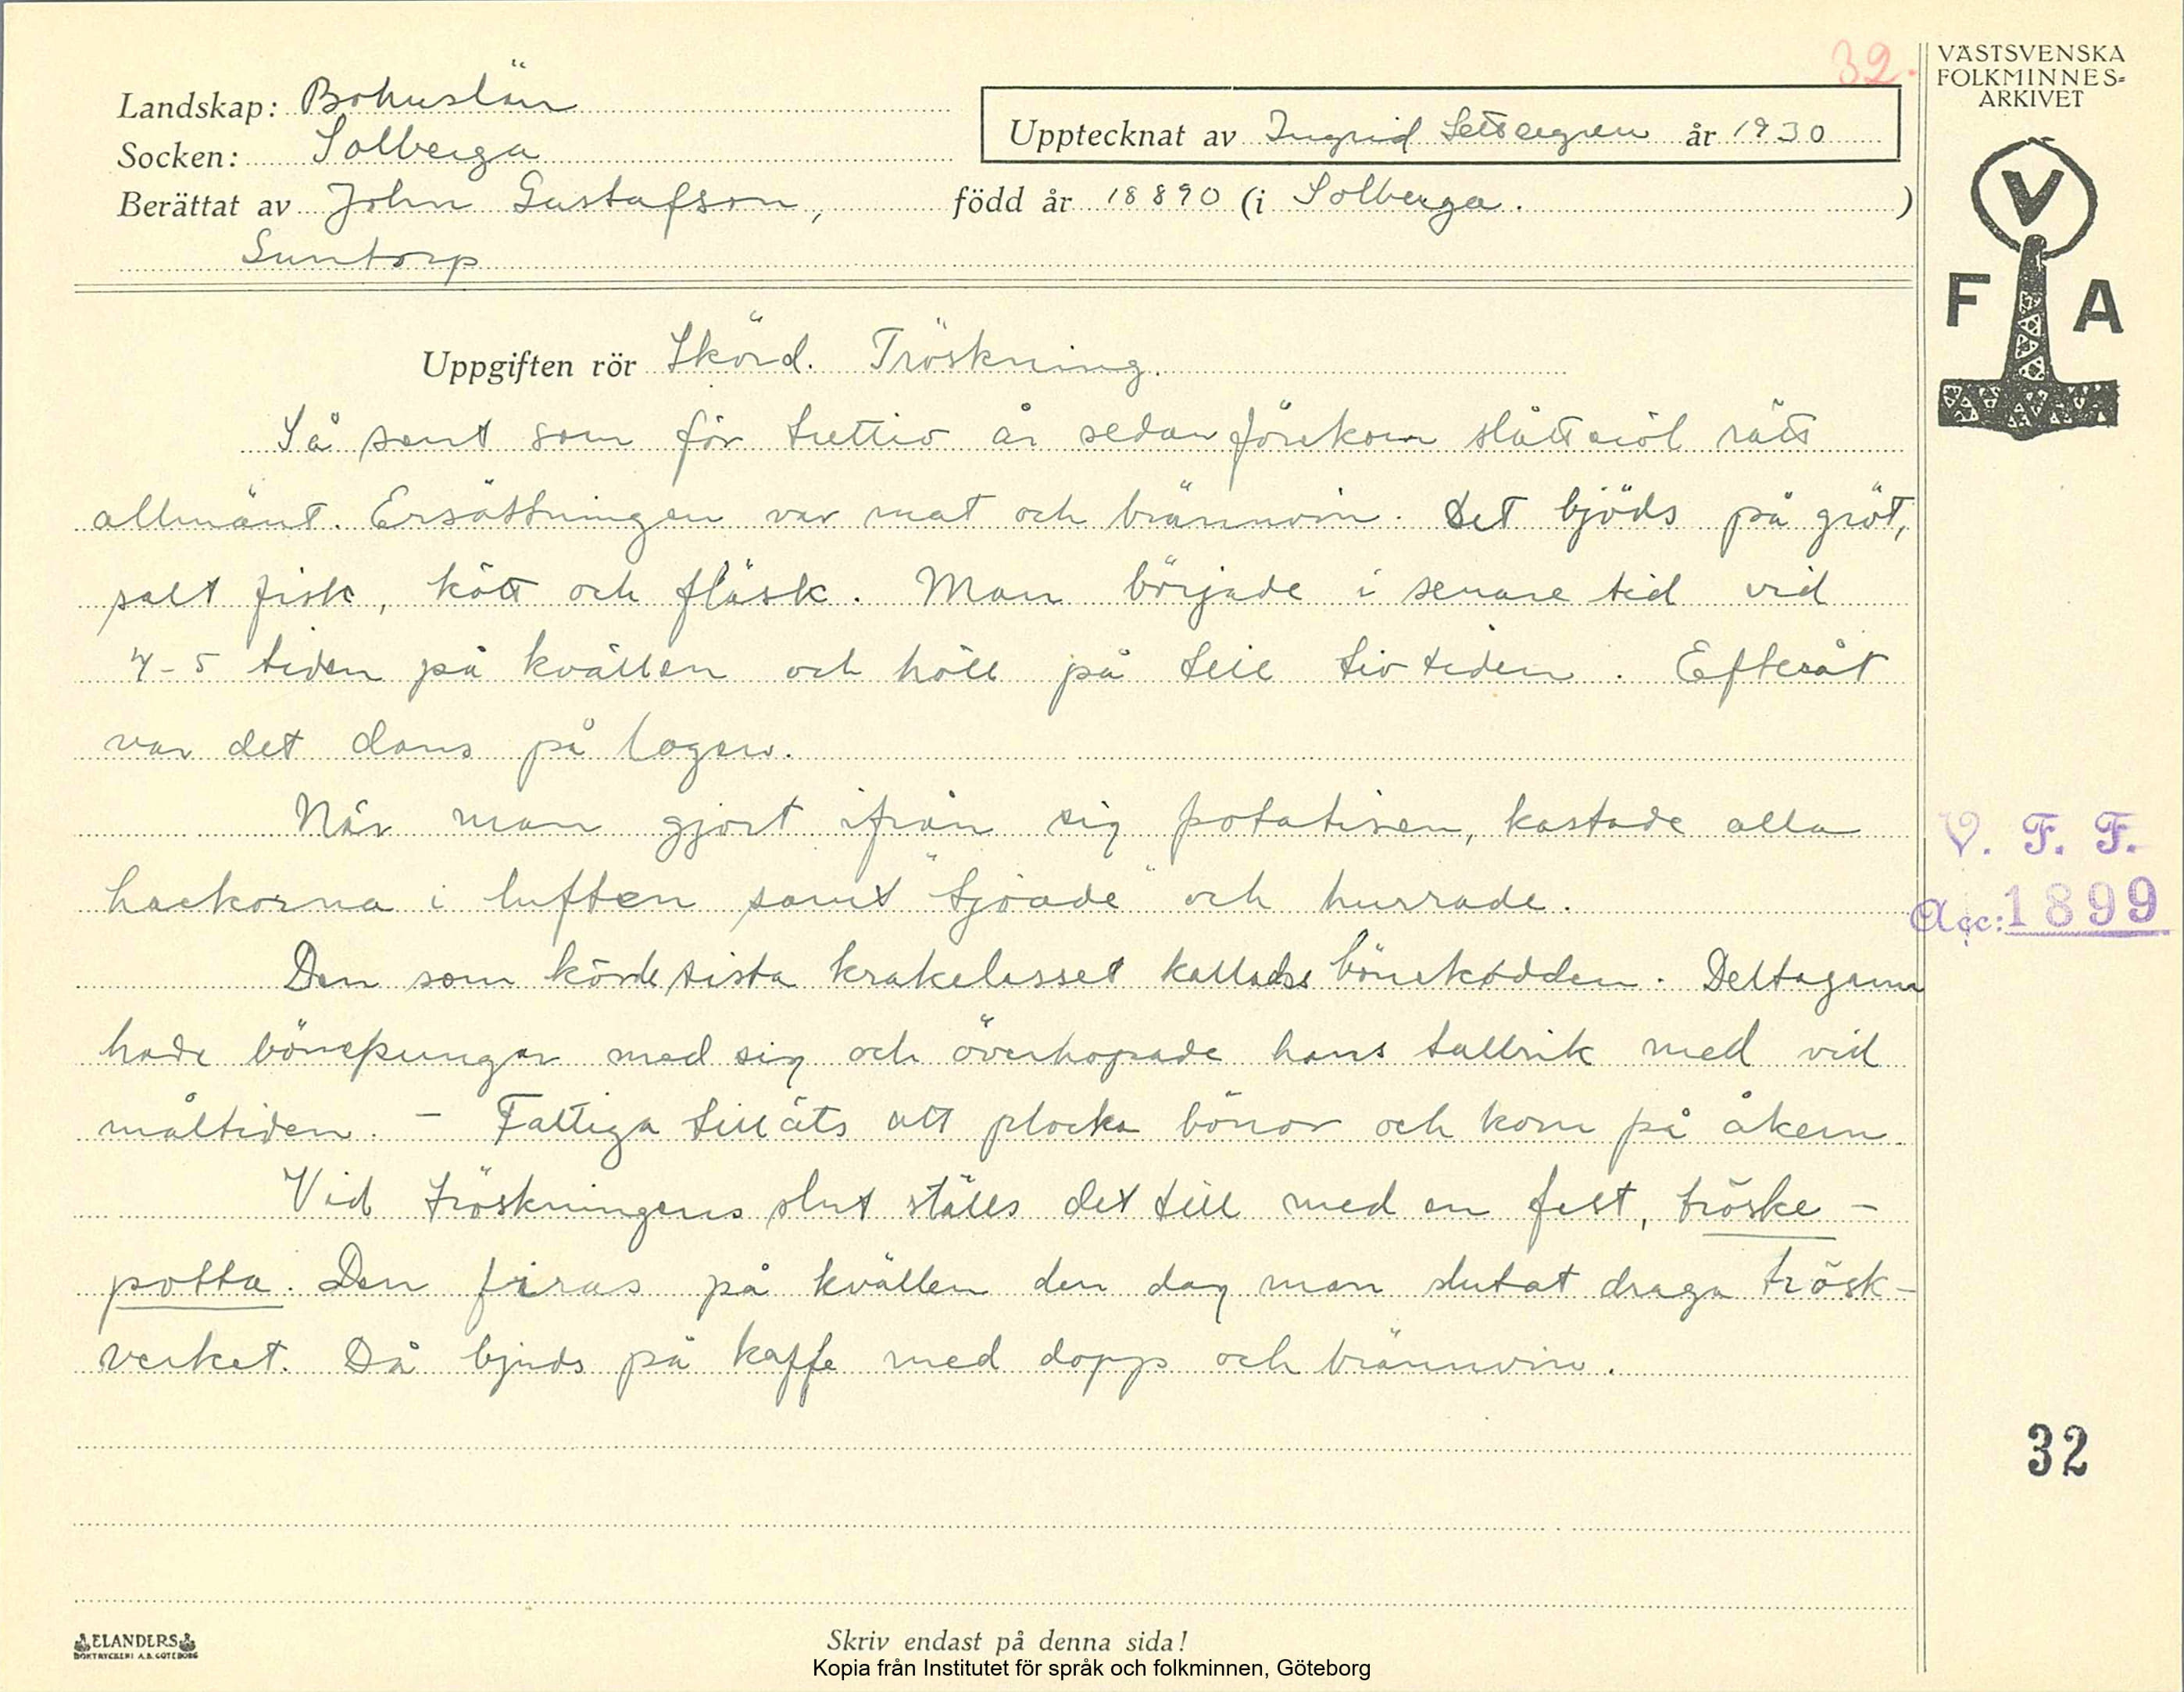 32.
VÄSTSVENSKA
FOLKMINNES-
ARKIVET
Landskap: Bohuslän
Upptecknat av Ingrid år 1930
Socken: Solberga
Berättat av John Gustafson, född år 18890 (i Solberga. )
Suntorp
V
F A
Uppgiften rör Skörd. Tröskning.
Så sent som för trettio år sedan förekom slåtteöl rätt
allmänt. Ersättningen var mat och brännvin. Det bjöds på gröt,
salt fisk, kött och fläsk. Man började i senare tid vid
4-5 tiden på kvällen och höll på till tiotiden. Efteråt
var det dans på logen.
När man gjort ifrån sig potatisen, kastade alla
hackorna i luften samt "tjöade" och hurrade.
V. F. F.
Acc: 1899
Den som körde sista krakelasset kalladesböneködden. Deltagarna
hade bönepungar med sig och överhopade hans tallrik med vid
måltiden. - Fattiga tilläts att plocka bönor och korn på åkern.
Vid tröskningens slut ställs det till med en fest, tröske-
potta. Den firas på kvällen den dag man slutat draga trösk-
verket. Då bjuds på kaffe med dopp och brännvin.
32
ELANDERS
BOKTRYCKERI A.B. GÖTEBORG
Skriv endast på denna sida!
Kopia från Institutet för språk och folkminnen, Göteborg